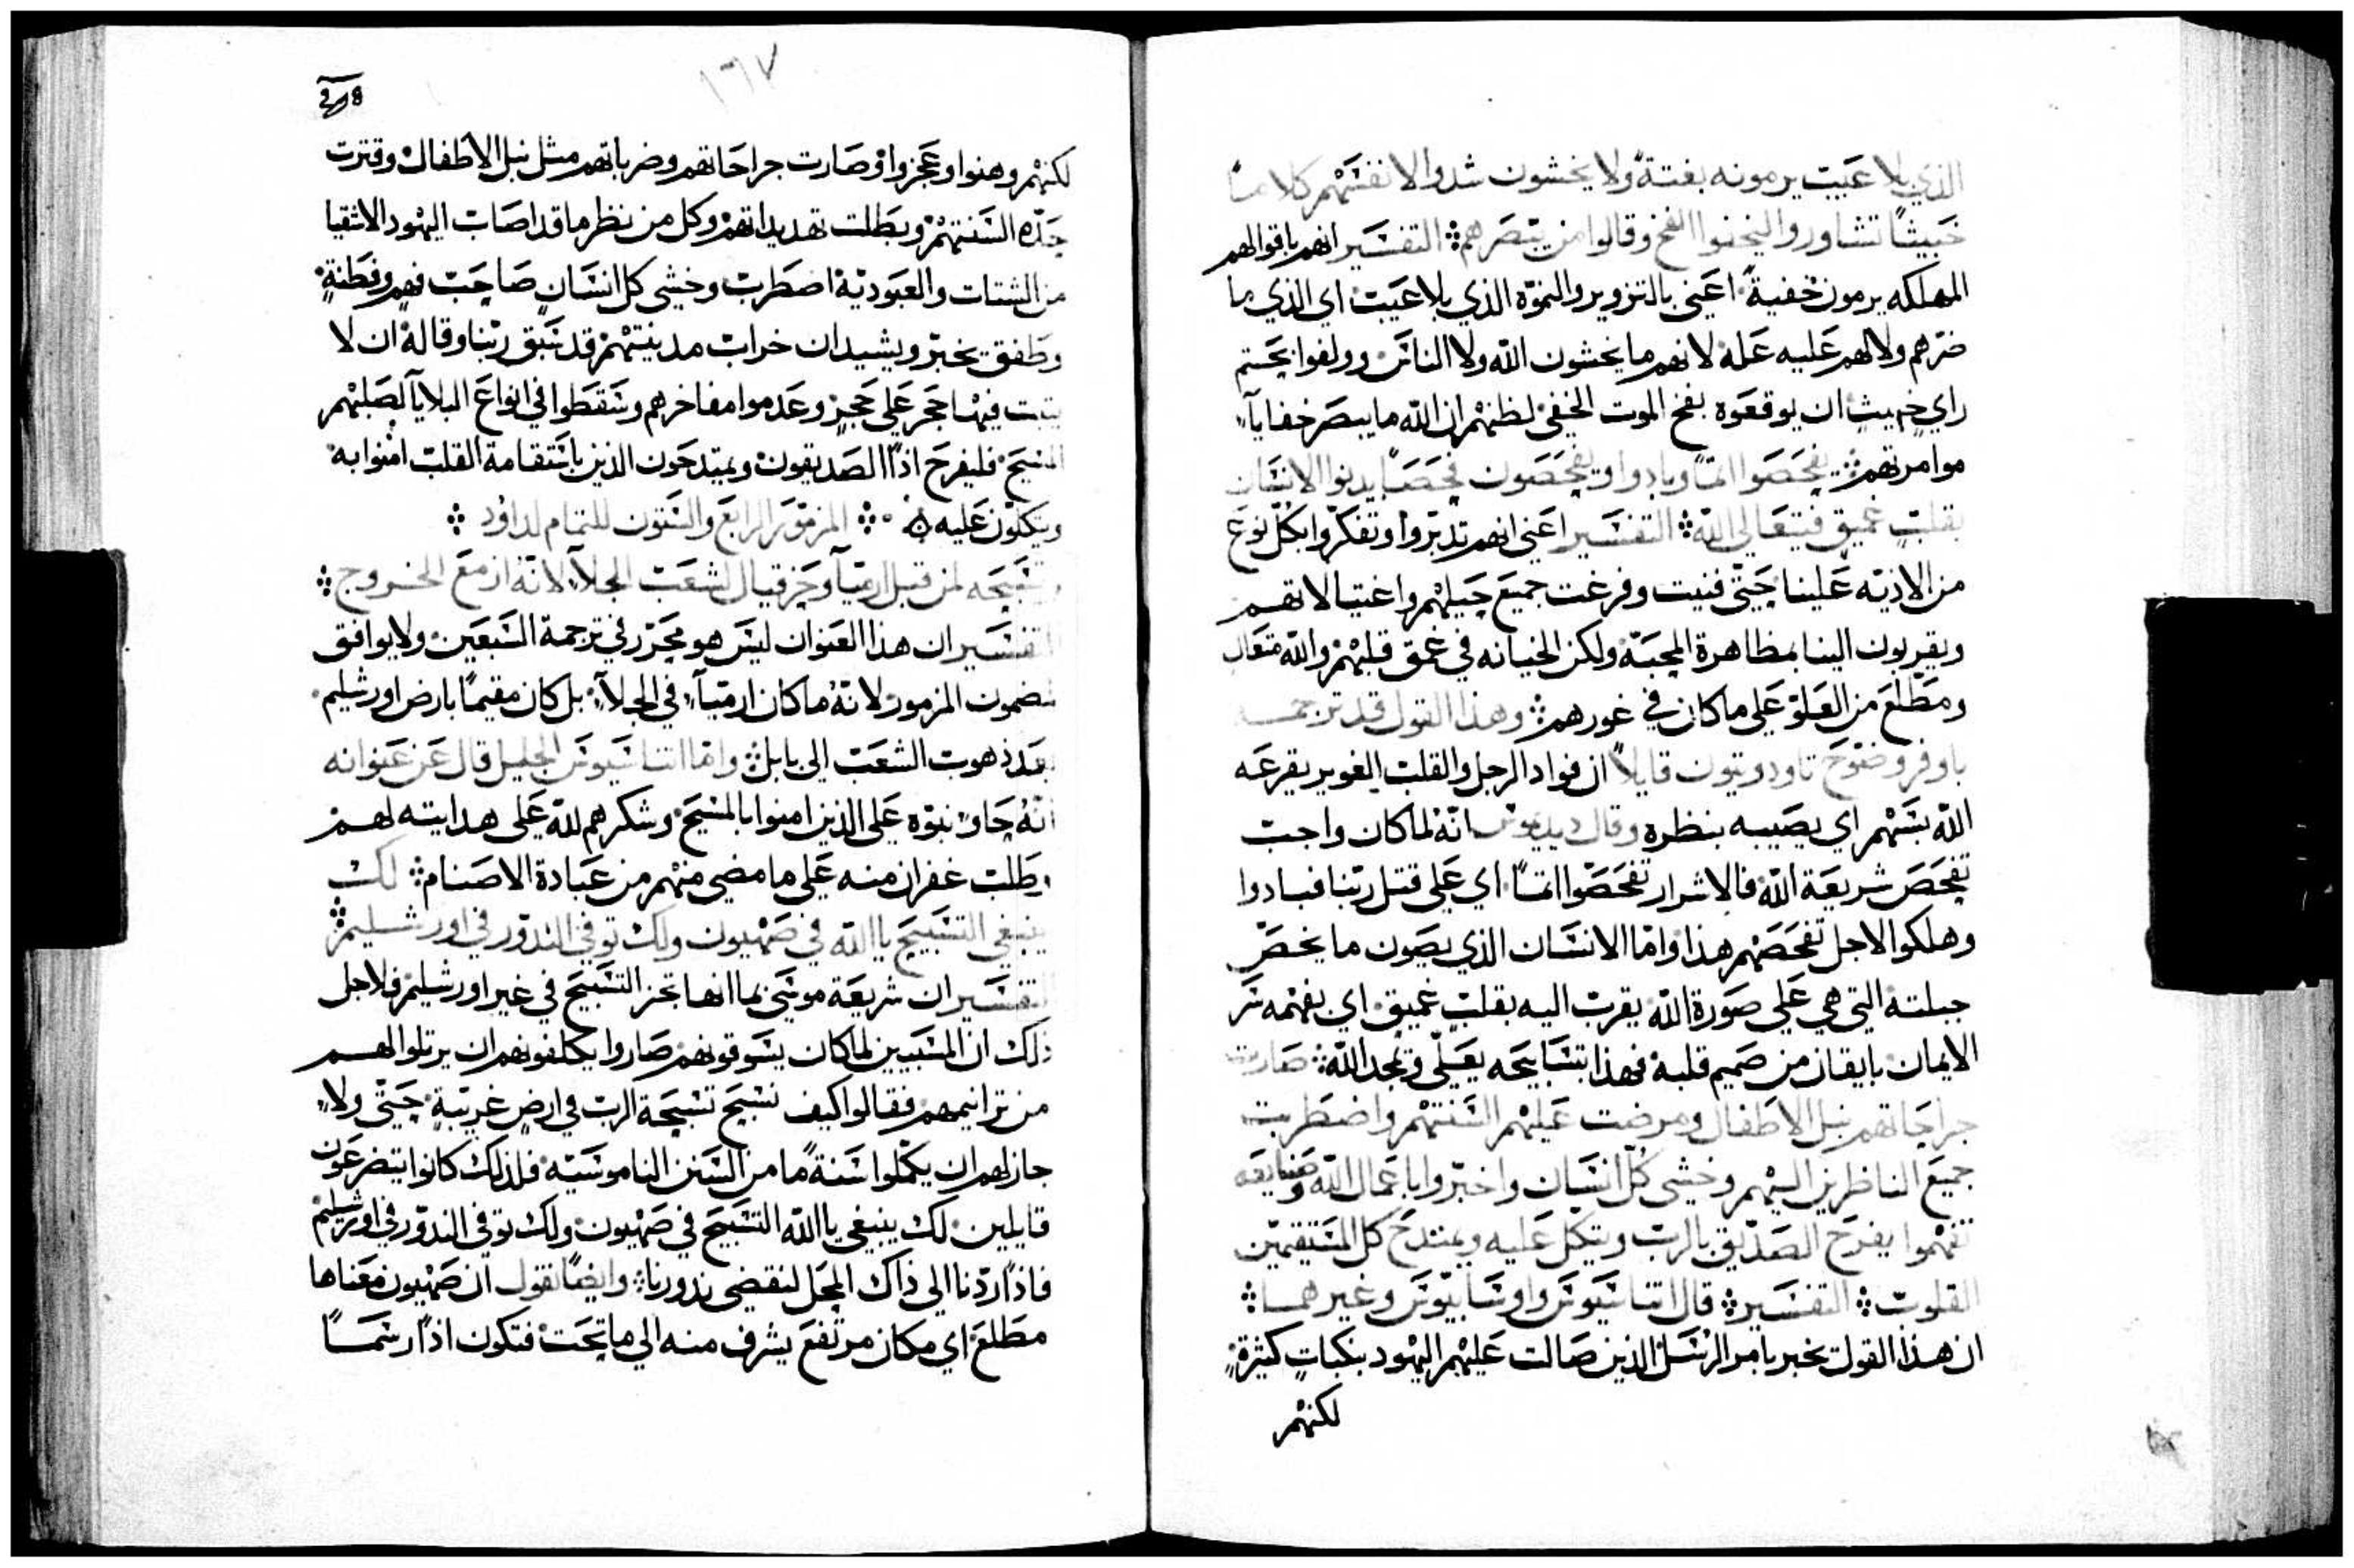 الذي بلا عيب يرمونه بغتةً ولا يخشون شدوا لانفسهم كلاماً
خبيثاً تشاوروا ليخفوا الفخ وقالوا من يبصرهم ܀ التفسير انهم باقوالهم
المهلكه يرمون خفيةً اعني بالتزوير والنموّه الذي بلا عيب اي الذي ما
ضرهم ولا لهم عليه علة لانهم ما يخشون الله ولا الناس
راي خبيث ان يوقعوه بفخ الموت الخفي لظنهم ان الله ما يبصر خفايا
موامرتهم ܀ تفحصوا اثماً وبادوا وتفحصون فحصاً يدنوا الانسان
بقلب عميق فيتعالى الله ܀ التفسير اعني انهم تدبّروا وتفكروا بكل نوع
من الاذيّه علينا حتى فنيت وفرغت جميع حيلهم واغتيالاتهم
ويقربون الينا بمظاهرة المحبّة ولكن الخيانه في عمق قلبهم والله متعال
ومطّلع من العلوّ على ما كان في غورهم ܀ وهذا القول قد ترجمه
باوفر وضوح تاودوتيون قايلاً ان فواد الرجل والقلب الغوير يقرعه
الله بسهم اي يصيبه بنظره وقال ديديموس انه لما كان واجب
تفحص شريعة الله فالاشرار تفحصوا اثماً اي على قتل ربنا فبادوا
وهلكوا لاجل تفحصهم هذا واما الانسان الذي يصون ما يخصّ
جبلته التي هي على صورة الله يقرب اليه بقلب عميق اي يفهم سر
الايمان بايقان من صميم قلبه فهذا بتسابيحه يعلّي ويمجد الله ܀ صارت
جراحاتهم نبل الاطفال ومرضت عليهم السنتهم واضطربت
جميع الناظرين اليهم وخشي كل انسان واخبروا باعمال الله وصنايعه
تفهموا يفرح الصدّيق بالرب ويتكل عليه ويمتدح كل المستقيمين
القلوب ܀ التفسير ܀ قال اتناسيوس واوسابيوس وغيرهما ܀
ان هذا القول يخبر بامر الرسل الذين صالت عليهم اليهود بنكبات كثيرة
لكنهم
١٦٧
لكنهم وهنوا وعجزوا وصارت جراحاتهم وضرباتهم مثل نبل الاطفال وفترت
حدّه السنتهم وبطلت تهديداتهم وكل من نظر ما قد اصاب اليهود الاشقيا
من الشتات والعبوديّة اضطرب وخشي كل انسان صاحب فهم وفطنةٍ
وطفق يخبر ويشيد ان خراب مدينتهم قد سبق ربنا وقاله ان لا
يثبت فيها حجر على حجر وعدموا مفاخرهم وسقطوا في انواع البلايا لصلبهم
المسيح فليفرح اذاً الصديقون ويمتدحون الذين باستقامة القلب امنوا به
ويتكلون عليه ܀ المزمور الرابع والستون للتمام لداوُد ܀
وتسبيحه من قبل ارميا وحزقيال لشعب الجلاء لانه ازمع الخروج ܀
التفسير ان هذا العنوان ليس هو محرّر في ترجمة السبعين ولا يوافق
مضمون المزمور لانه ما كان ارميا في الجلاء بل كان مقيماً بارض اورشليم
بعد ذهوب الشعب الى بابل ܀ واما اتناسيوس الجليل قال عن عنوانه
انه حاوٍ نبوّه على الذين امنوا بالمسيح وشكرهم لله على هدايته لهم
وطلب غفران منه على ما مضى منهم من عبادة الاصنام ܀ لك
ينبغي التسبيح يا الله في صهيون ولك توفى الندور في اورشليم ܀
التفسير ان شريعة موسى بما انها تحز التسبيح في غير اورشليم فلاجل
ذلك ان المسبيين لما كان يسوقونهم صاروا يكلفونهم ان يرتلوا لهم
من ترانيمهم فقالوا كيف نسبح تسبحة الرب في ارضٍ غريبةٍ حتى ولا
جاز لهم ان يكملوا سنةً ما من السنن الناموسيّه فلذلك كانوا يتضرعون
قايلين لك ينبغي يا الله التسبيح في صهيون ولك توفى الندور في اورشليم
فاذاً ردّنا الى ذاك المحل لنقضي ندورنا ܀ وايضاً نقول ان صهيون معناها
مطلع اي مكان مرتفع يشرف منه الى ما تحت فتكون اذاً رسماً